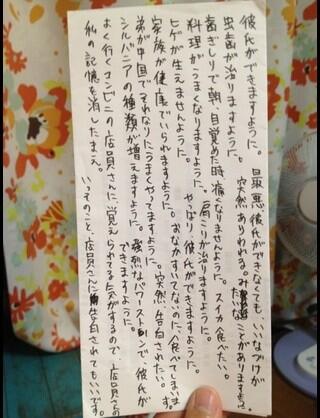 彼氏ができますように。最悪彼氏ができなくても、いいなづけが
虫歯が治りますように。突然ありわれる。みたいなことがありますように。
歯ぎしりで朝、目覚めた時痛くなりませんように。スイカ食べたい。
料理がうまくなりますように。肩こりが治りますように。
ヒゲが生えませんように。やっぱり、彼氏ができますように。
家族が健康でいられますように。おなかすいてないのに、食べてしまいます。
弟が中国でそれなりにうまくやってますように。突然、告白されたいです。
シルバニアの種類が増えますように。強烈なパワーストーンで彼氏ができますように。
よく行くコンビニの店員さんに覚えられてる気がするので、店員さんの
私の記憶を消したまえ。いっそのこと、店員さんに告白されてもいいです。